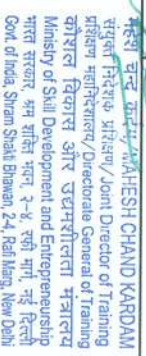 महेश चन्द कर्दम/MAHESH CHAND KARDAM
संयुक्त निदेशक प्रशिक्षण/Joint Director of Training
प्रशिक्षण महानिदेशालय/Directorate General of Training
कौशल विकास और उद्यमशीलता मंत्रालय
Ministry of Skill Development and Entrepreneurship
भारत सरकार, श्रम शक्ति भवन, २-४ रफी मार्ग, नई दिल्ली
Govt. of India, Shram Shakti Bhawan, 2-4, Rafi Marg, New Delhi